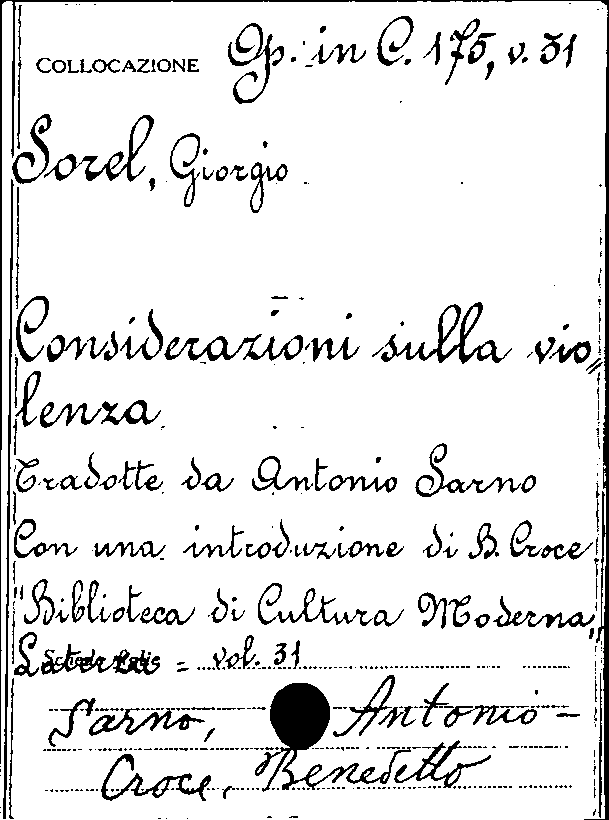 COLLOCAZIONE Op. in C. 175, v. 31
Sorel, Giorgio
Considerazioni sulla vio„
lenza
Tradotte da Antonio Sarno
Con una introduzione di B. Croce
"Biblioteca di Cultura Moderna„
Laterza = vol. 31
Sarno, Antonio -
Croce, Benedetto